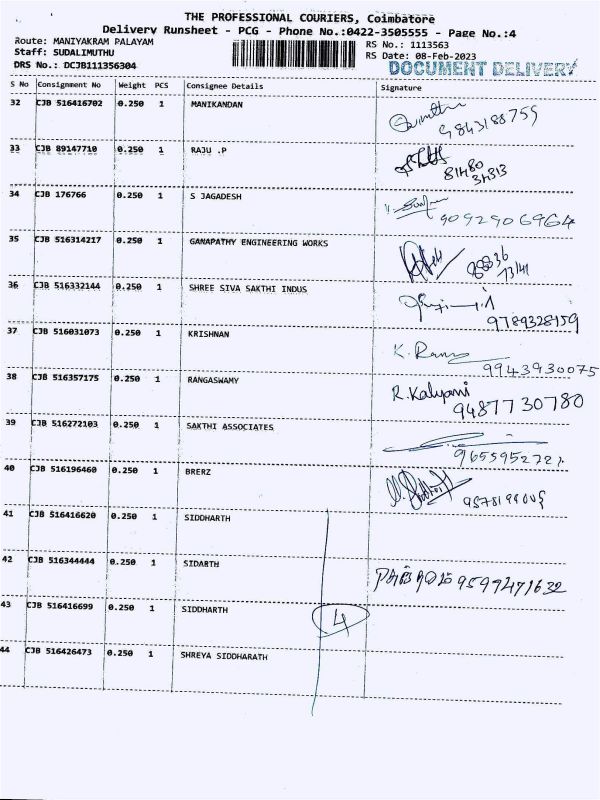 THE PROFESSIONAL COURIERS, Coimbatore
Delivery Runsheet - PCG - Phone No.:0422-3505555 - Page No.:4
Route: MANIYAKRAM PALAYAM
RS No.: 1113563
Staff: SUDALIMUTHU
RS Date: 08-Feb-2023
DRS No.: DCJB111356304
DOCUMENT DELIVERY
S No Consignment No Weight PCS Consignee Details Signature
32 CJB 516416702 0.250 1 MANIKANDAN
9843188759
33 CJB 89147710 0.250 1 RAJU .P
81480
34313
34 CJB 176766 0.250 1 S JAGADESH
9092906964
35 CJB 516314217 0.250 1 GANAPATHY ENGINEERING WORKS
36 CJB 516332144 0.250 1 SHREE SIVA SAKTHI INDUS
9789328159
37 CJB 516031073 0.250 1 KRISHNAN
9943930075
38 CJB 516357175 0.250 1 RANGASWAMY R. Kalyani
9487730780
39 CJB 516272103 0.250 1 SAKTHI ASSOCIATES
40 CJB 516196460 0.250 1 BRERZ
41 CJB 516416620 0.250 1 SIDDHARTH
42 CJB 516344444 0.250 1 SIDARTH 9599471632
43 CJB 516416699 0.250 1 SIDDHARTH
4
44 CJB 516426473 0.250 1 SHREYA SIDDHARATH